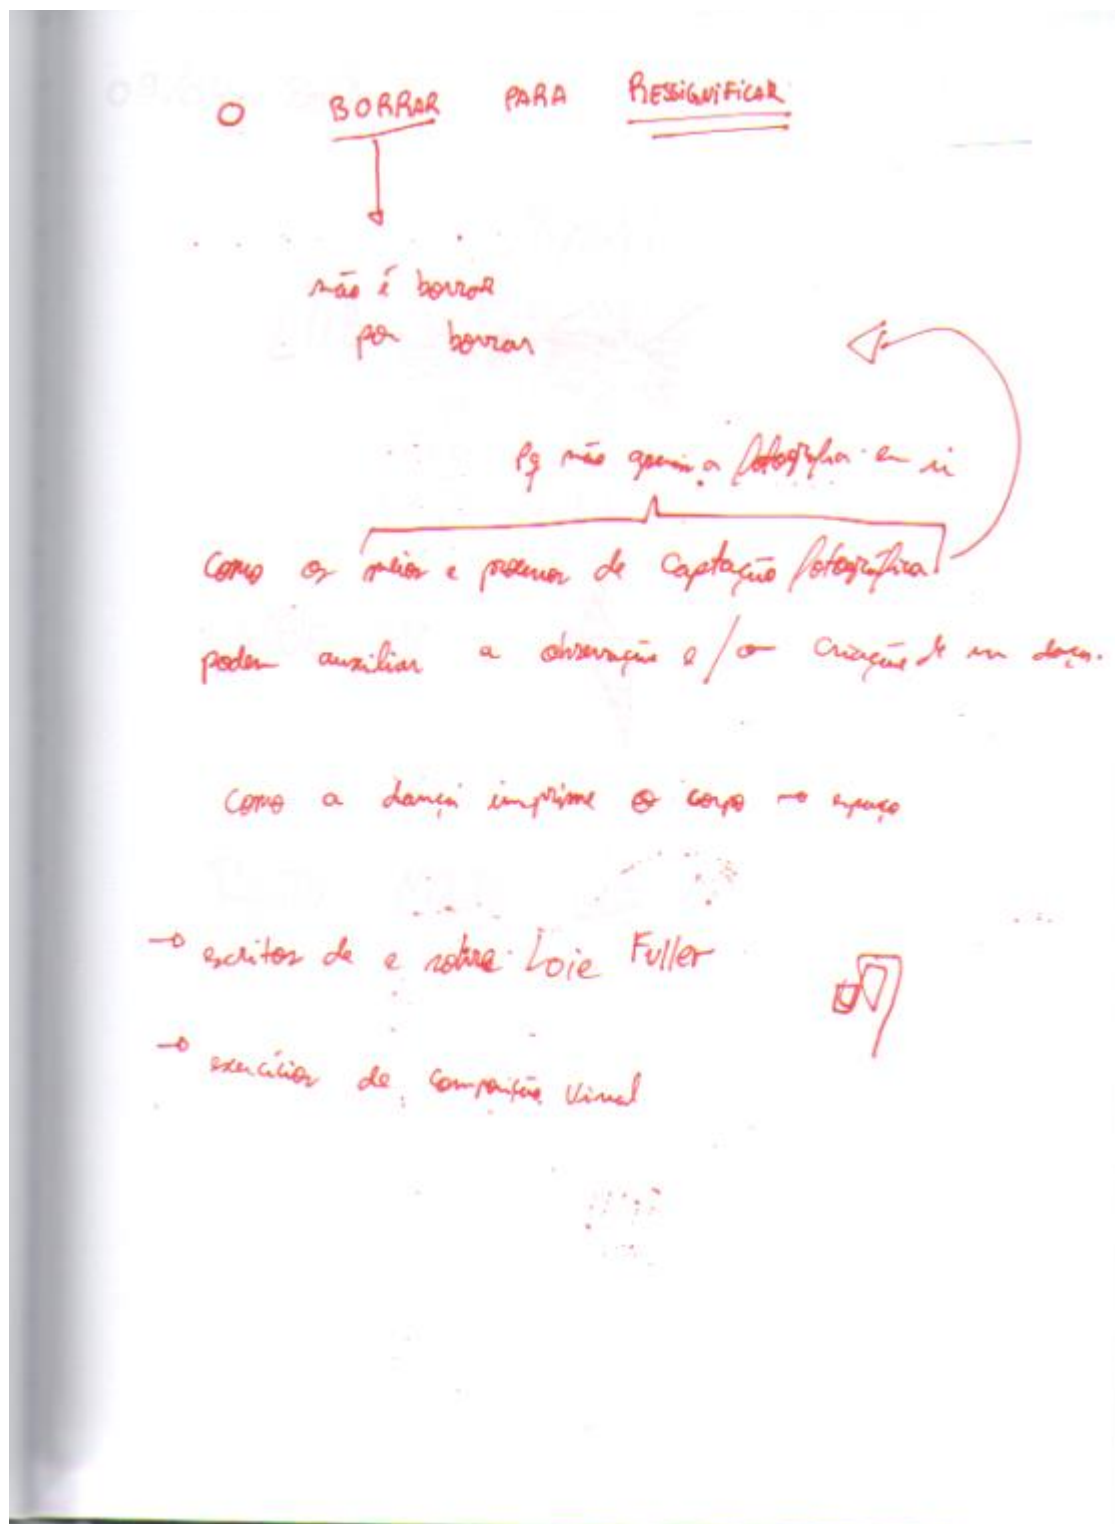 O BORRAR PARA RESSIGNIFICAR
não é borrar
por borrar
Pq não apenas a fotografia em si
Como os meios e processos de captação fotográfica
podem auxiliar a observação e/ou criação de em dança.
Como a dança imprime o corpo no espaço
escritos de e sobre Loie Fuller
exercícios de composição visual